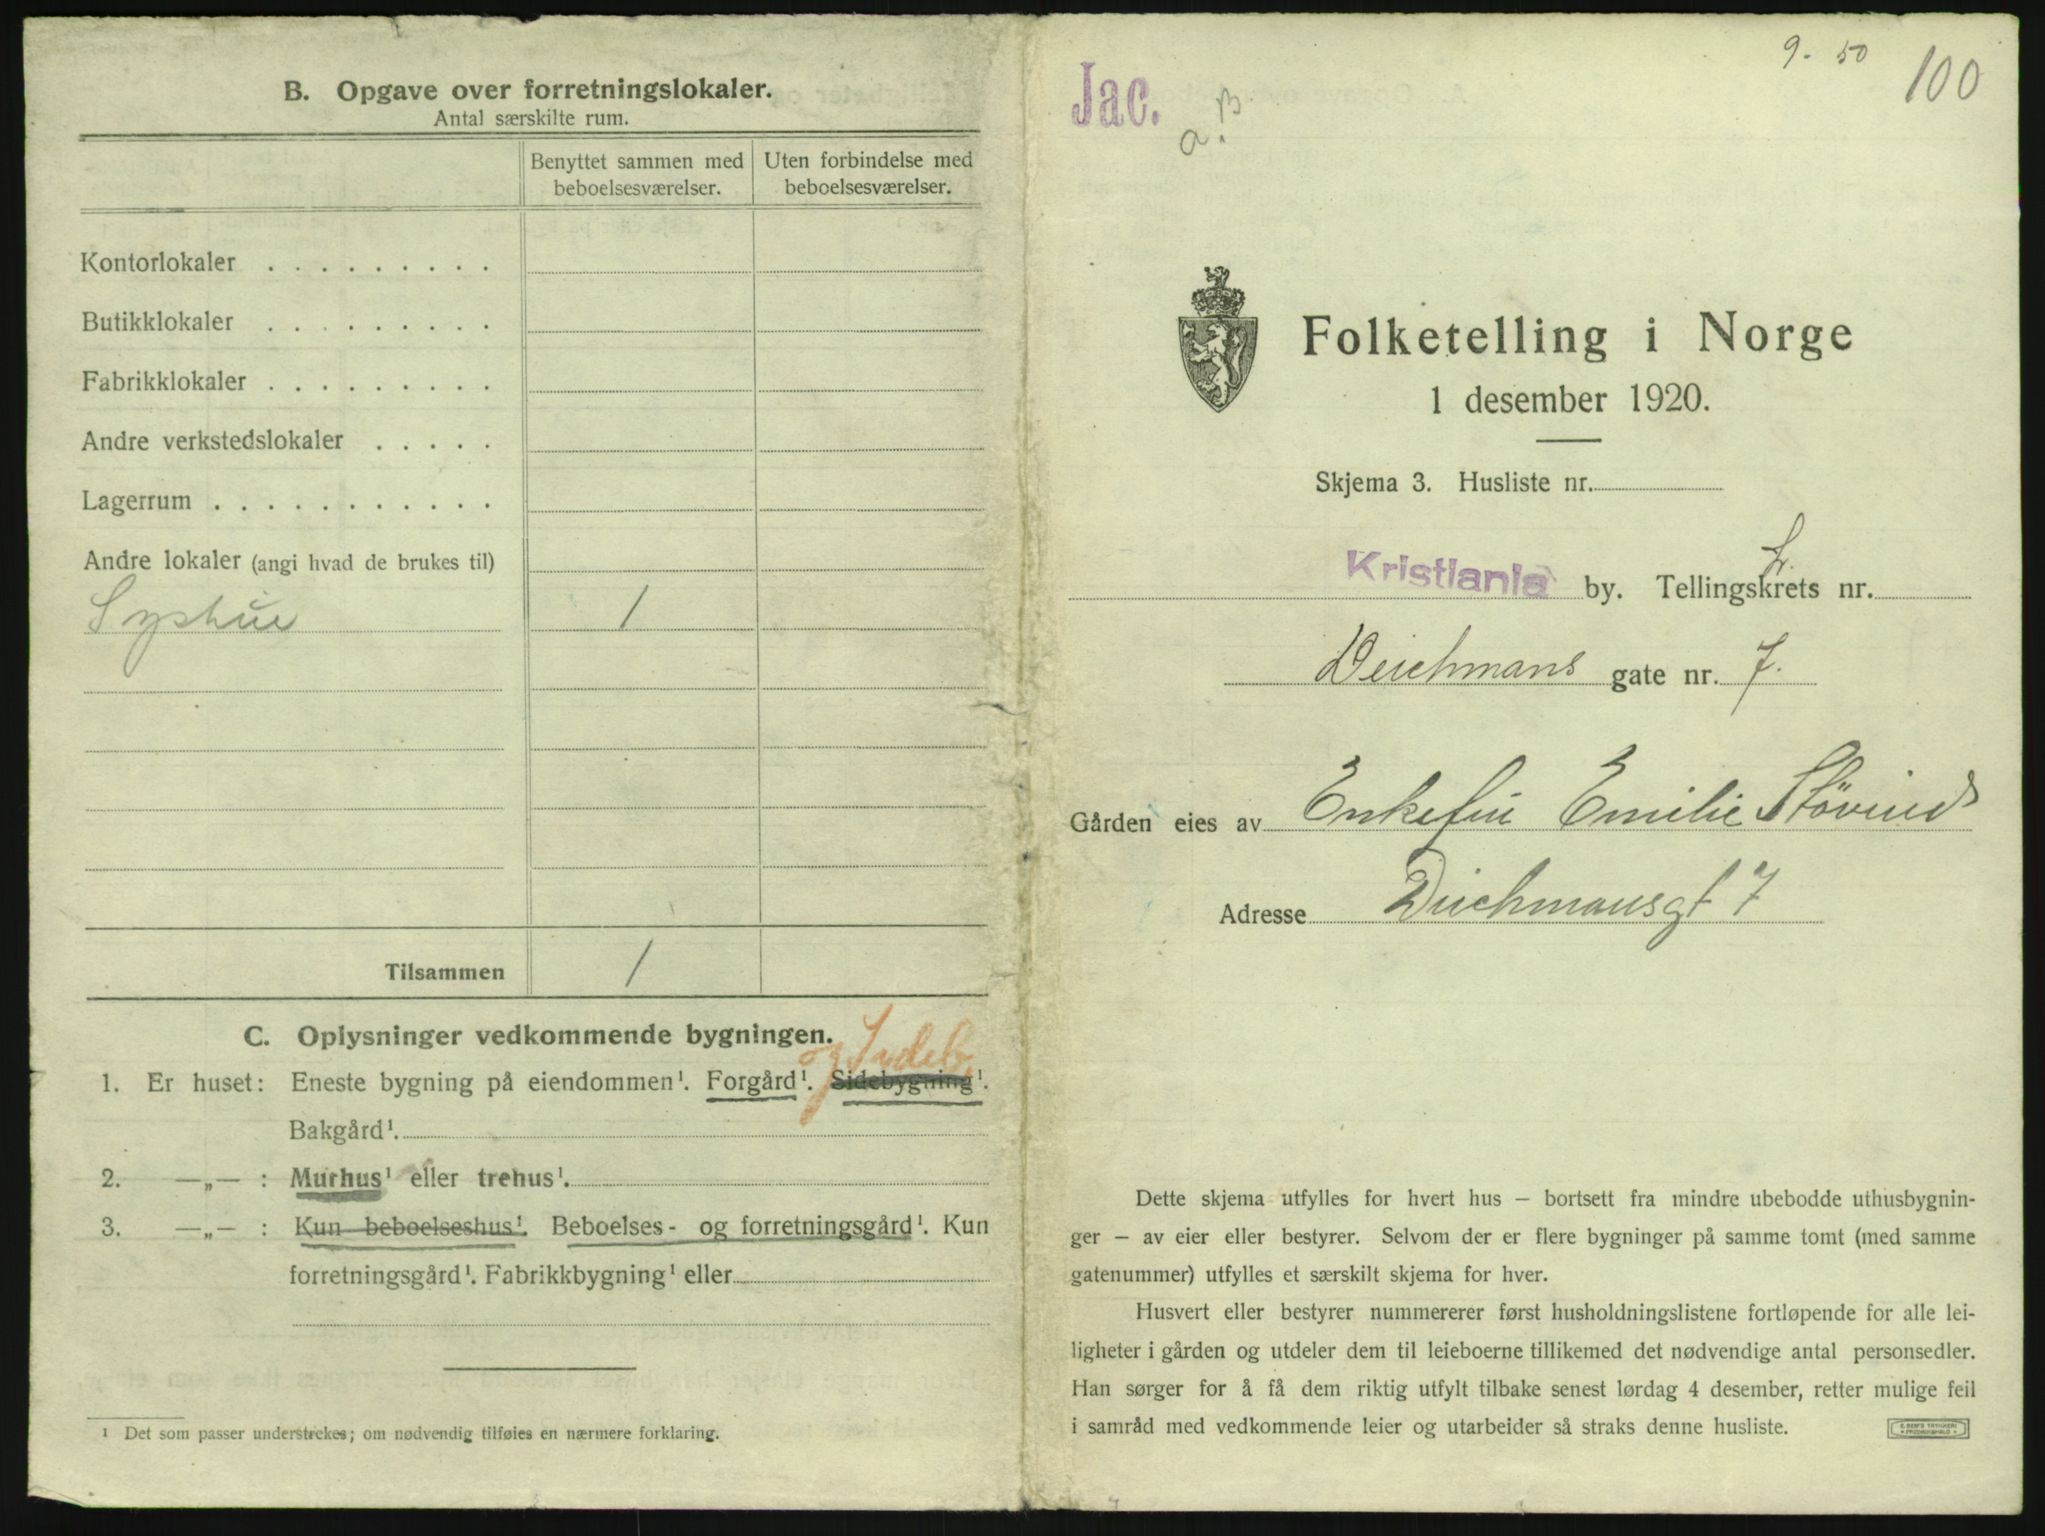 B. Opgave over forretningslokaler.
Antal særskilte rum.
Benyttet sammen med beboelsesværelser.
Uten forbindelse med beboelsesværelser.
Kontorlokaler . . . . . . . . .
Butikklokaler . . . . . . . . .
Fabrikklokaler . . . . . . . . .
Andre verkstedslokaler . . . . .
Lagerrum . . . . . . . . . . .
Andre lokaler (angi hvad de brukes til)
Systue 1
Tilsammen 1
C. Oplysninger vedkommende bygningen.
og Sideb.
1. Er huset: Eneste bygning på eiendommen¹. Forgård¹. Sidebygning¹.
Bakgård¹.
2. —„— : Murhus¹ eller trehus¹.
3. —„— : Kun beboelseshus¹. Beboelses- og forretningsgård¹. Kun
forretningsgård¹. Fabrikkbygning¹ eller
¹ Det som passer understrekes; om nødvendig tilføies en nærmere forklaring.
9. 50 100
Jac.
a. B
Folketelling i Norge
1 desember 1920.
Skjema 3. Husliste nr.
Kristiania by. Tellingskrets nr.
Deichmans gate nr. 7.
Gården eies av Enkefru Emilie Støvind
Adresse Deichmansgt 7
Dette skjema utfylles for hvert hus – bortsett fra mindre ubebodde uthusbygnin-
ger – av eier eller bestyrer. Selvom der er flere bygninger på samme tomt (med samme
gatenummer) utfylles et særskilt skjema for hver.
Husvert eller bestyrer nummererer først husholdningslistene fortløpende for alle lei-
ligheter i gården og utdeler dem til leieboerne tillikemed det nødvendige antal personsedler.
Han sørger for å få dem riktig utfylt tilbake senest lørdag 4 desember, retter mulige feil
i samråd med vedkommende leier og utarbeider så straks denne husliste.